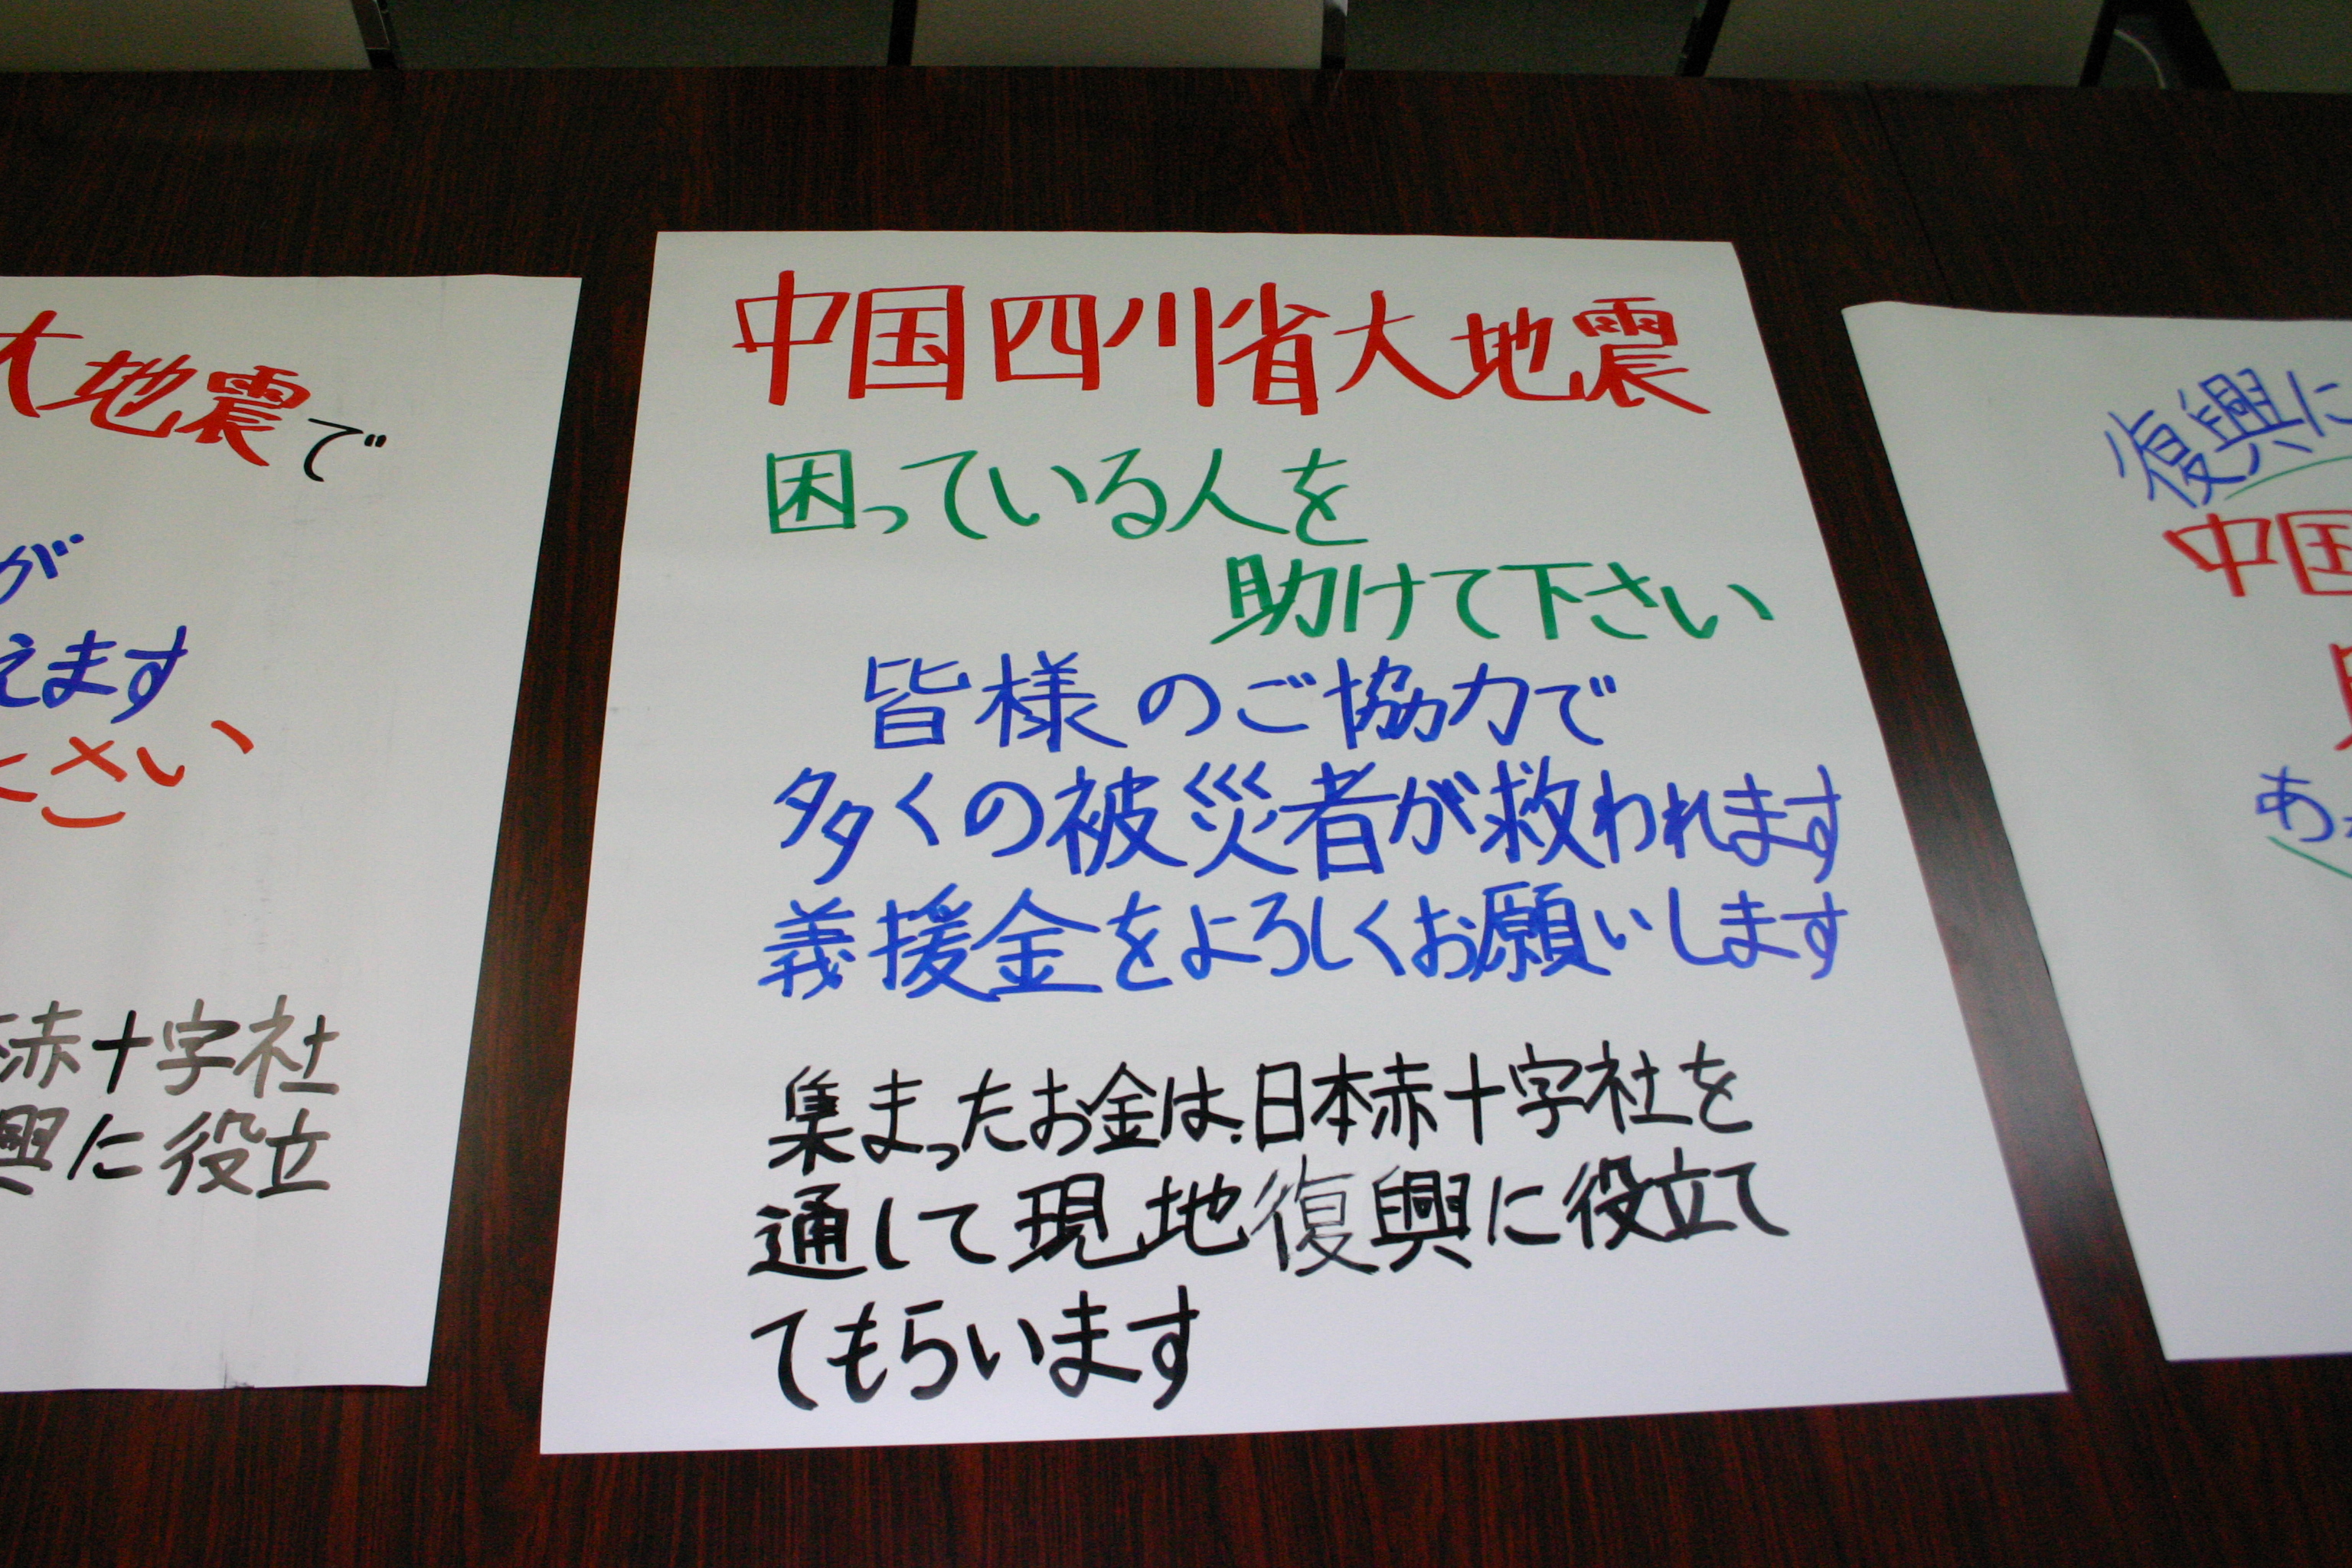 大地震で
が
えます
さい
赤十字社
興に役立
中国四川省大地震
困っている人を
助けて下さい
皆様のご協力で
多くの被災者が救われます
義援金をよろしくお願いします
集まったお金は、日本赤十字社を
通して現地復興に役立て
てもらいます
復興に
中国
あ